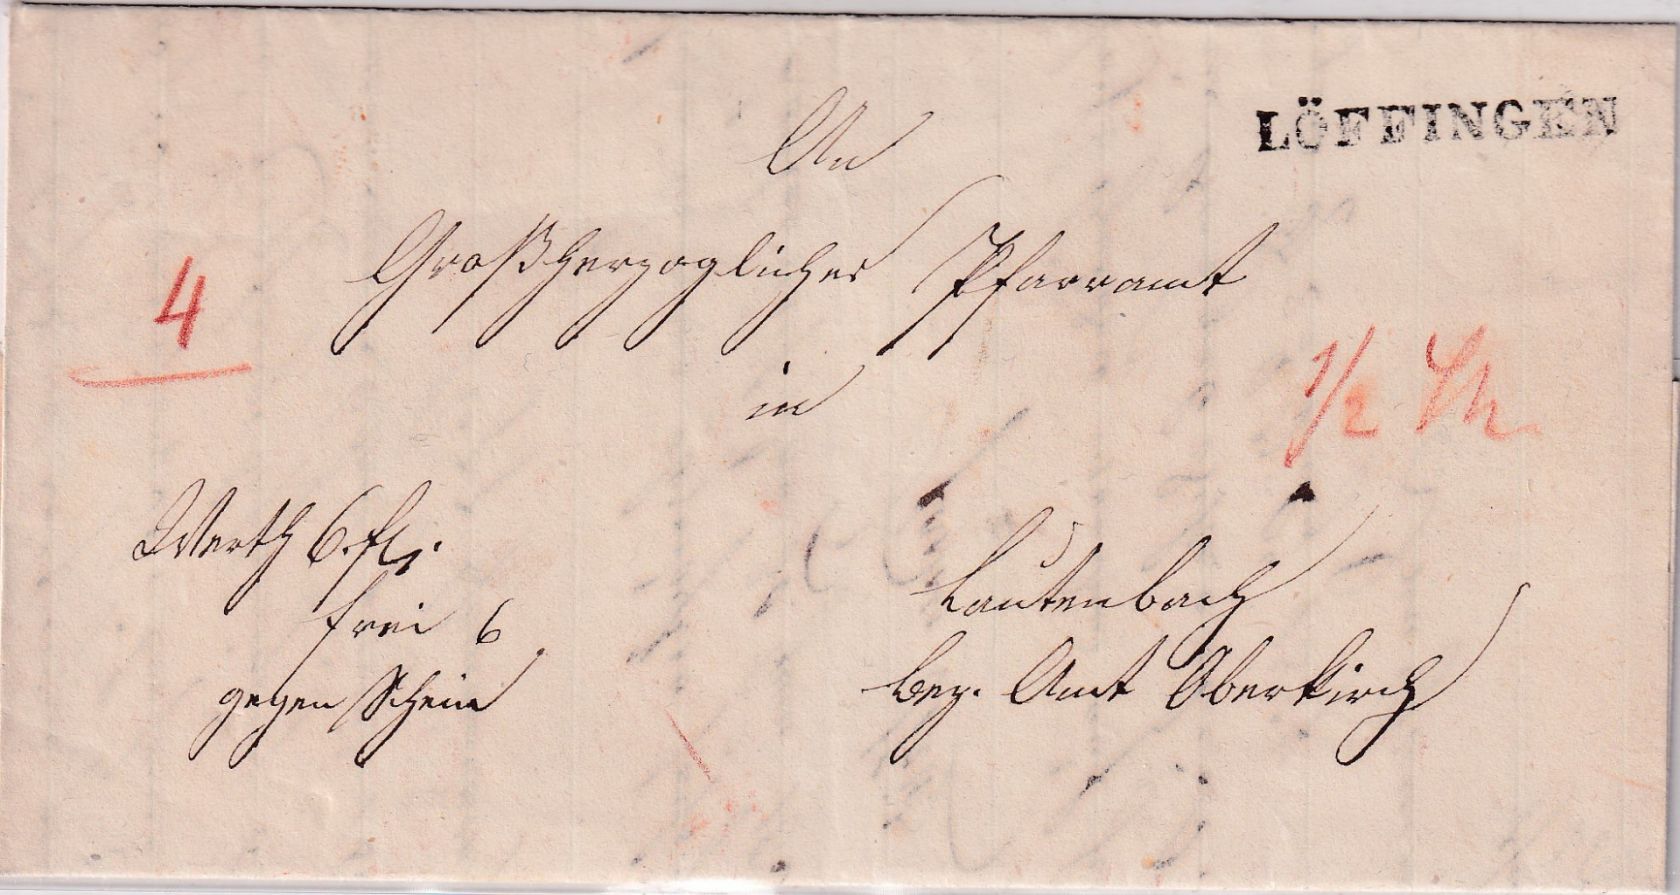 LÖFFINGEN
An
Großherzogliches Pfarramt
4
in
1/2
Werth 6. fl.
frei 6
gegen Schein
Lautenbach
Bez. Amt Oberkirch